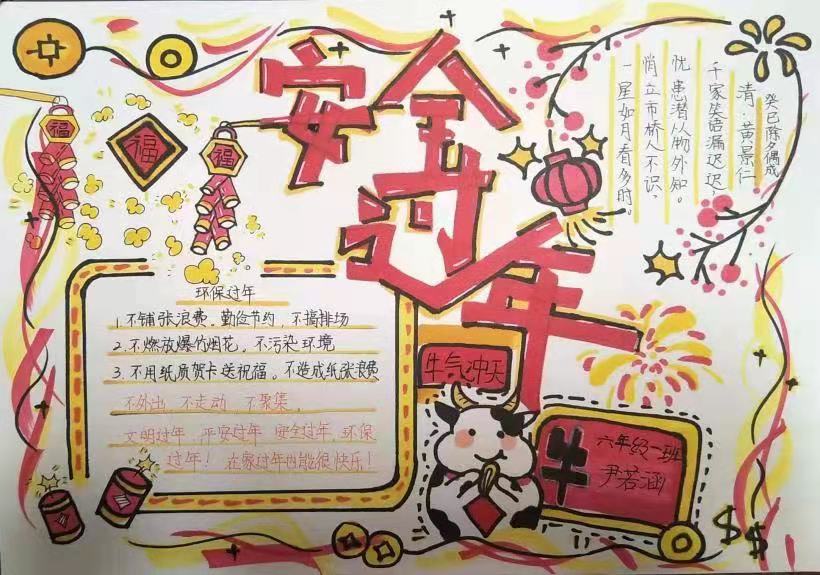 安全过年
福
福
福
癸巳除夕偶成
清·黄景仁
千家笑语漏迟迟，
忧患潜从物外知。
悄立市桥人不识，
一星如月看多时。
环保过年
1.不铺张浪费。勤俭节约，不搞排场
2.不燃放爆竹烟花，不污染环境
3.不用纸质贺卡送祝福。不造成纸张浪费
不外出，不走动，不聚集。
文明过年，平安过年，安全过年，环保
过年！在家过年也能很快乐！
牛气冲天
牛
六年级一班
尹若涵
$$